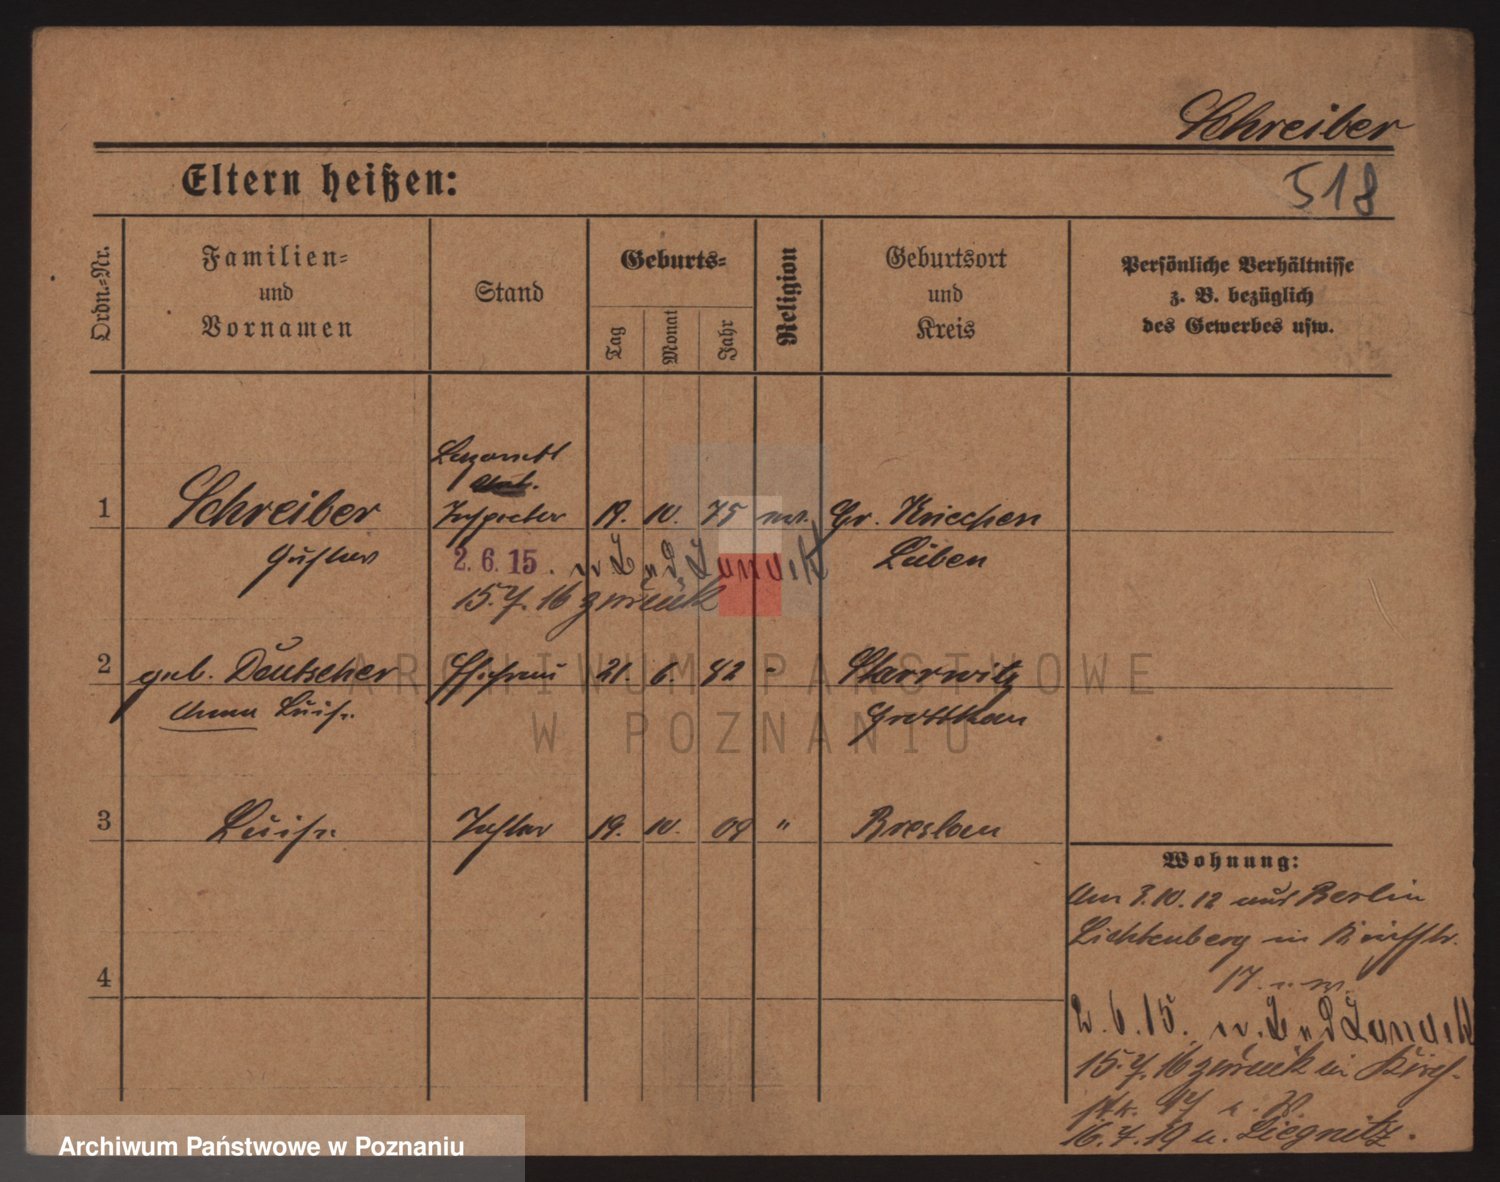 Schreiber
518
Eltern heißen:
Ordn.-Nr.
Familien-
und
Vornamen
Stand
Geburts-
Tag
Monat
Jahr
Religion
Geburtsort
und
Kreis
Persönliche Verhältnisse
z. B. bezüglich
des Gewerbes usw.
1
Schreiber
Gustav
Lazarett
Inspector
19. 10. 75
Gr. Kriechen
Lüben
2. 6. 15.
15. 7. 16 zurück
2
geb. Deutscher
Anna Luise
Ehefrau
21. 6. 82 -
Starrwitz
Grottkau
3
Luise
Tochter
19. 10. 09 "
Breslau
4
Wohnung:
Am 3.10.12 aus Berlin
Lichtenberg in
17.
2. 6. 15.
15. 7. 16 zurück in
16. 7. 19 n. Liegnitz.
ARCHIWUM PAŃSTWOWE
W POZNANIU
Archiwum Państwowe w Poznaniu